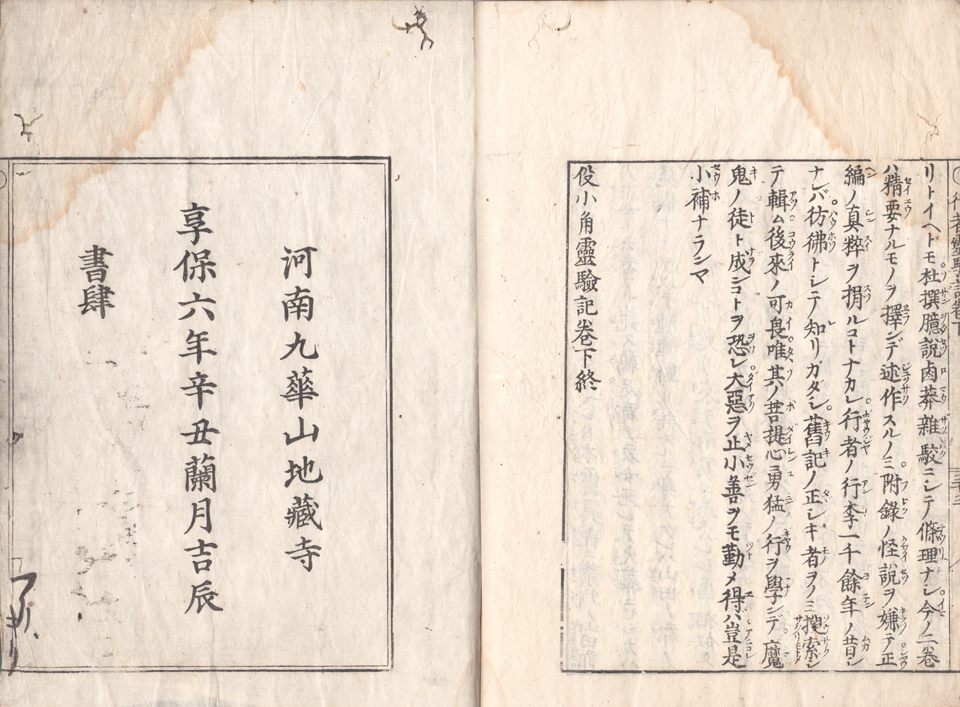 行者靈驗記卷下
リトイヘドモ杜撰臆說鹵莽雜駁ニシテ條理ナシ今ノ二卷
ハ精要ナルモノヲ擇ンデ述作スルノミ附錄ノ怪說ヲ嫌テ正
編ノ真粹ヲ捐ルコトナカレ行者ノ行李一千餘年ノ昔シ
ナレバ彷彿トシテ知リガタシ舊記ノ正シキ者ヲノミ搜索シ
テ輯ム後來ノ可畏唯其ノ菩提心勇猛ノ行ヲ學ンデ魔
鬼ノ徒ト成ンコトヲ恐レ大惡ヲ止小善ヲモ勤メ得バ豈是
小補ナランヤ
役小角靈驗記卷下終
河南九華山地藏寺
享保六年辛丑蘭月吉辰
書肆